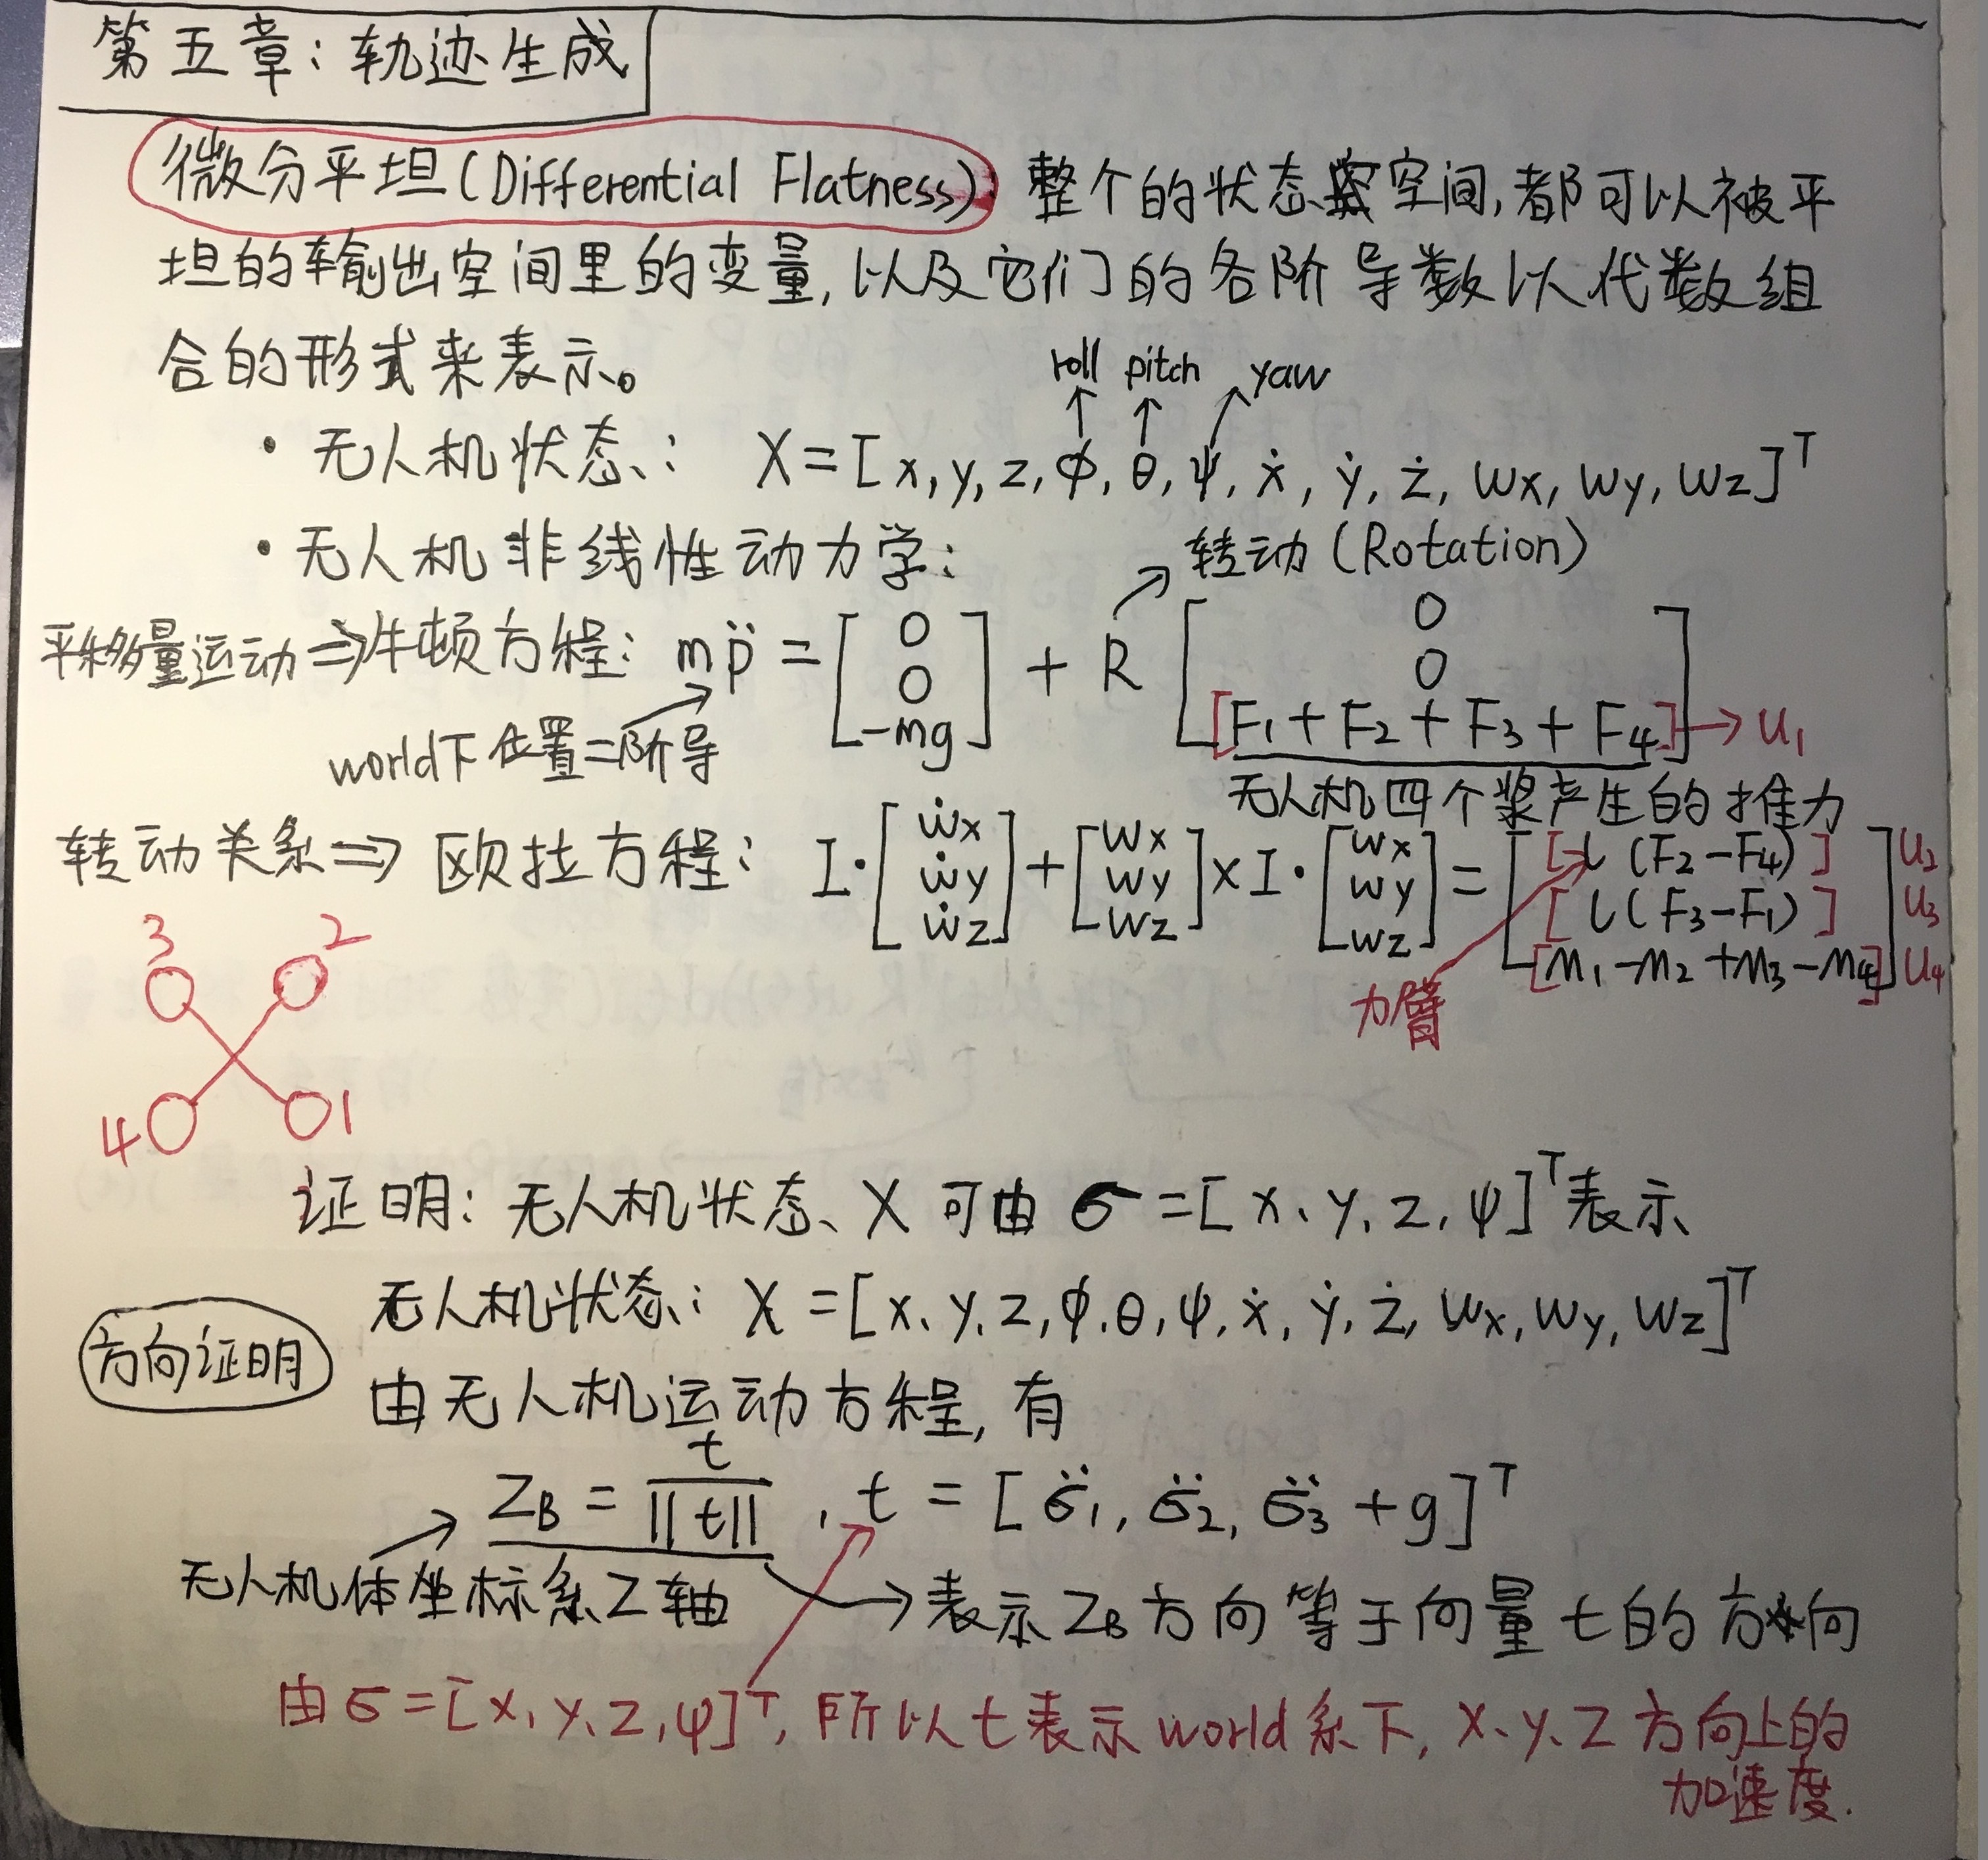 第五章：轨迹生成
微分平坦(Differential Flatness) 整个的状态空间,都可以被平
坦的输出空间里的变量,以及它们的各阶导数以代数组
合的形式来表示。
roll pitch yaw
· 无人机状态: X=[x,y,z,ϕ,θ,ψ,ẋ,ẏ,ż,wx,wy,wz]ᵀ
· 无人机非线性动力学: 转动(Rotation)
平移量运动⇒牛顿方程: mp̈ = [0 0 -mg] + R [0 0 [F₁+F₂+F₃+F₄]] → u₁
world下位置二阶导
无人机四个桨产生的推力
转动关系⇒ 欧拉方程: I·[ẇx ẇy ẇz]+[wx wy wz]×I·[wx wy wz]=[[l(F₂-F₄)] [l(F₃-F₁)] [M₁-M₂+M₃-M₄]] u₂ u₃ u₄
力臂
3 2
4 1
证明: 无人机状态、X 可由 σ=[x、y、z,ψ]ᵀ表示
无人机状态: X=[x、y,z,ϕ,θ,ψ,ẋ,ẏ,ż,wx,wy,wz]ᵀ
方向证明
由无人机运动方程,有
Z_B = t/||t||, t = [σ̈₁, σ̈₂, σ̈₃+g]ᵀ
无人机体坐标系Z轴
→表示Z_B方向等于向量t的方向
由σ=[x,y、z,ψ]ᵀ,所以t表示world系下,x、y、z方向上的
加速度.